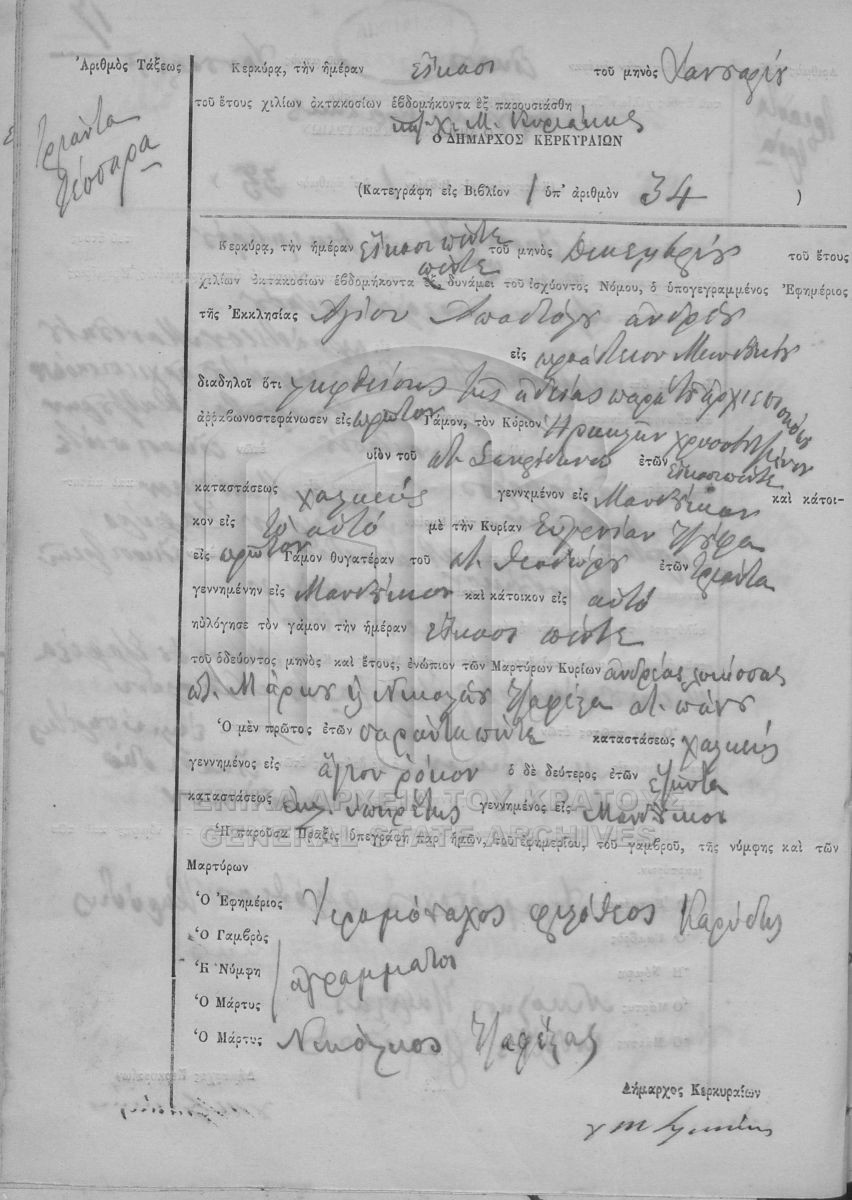 Ἀριθμὸς Τάξεως
Τριάντα
τέσσαρα
Κερκύρᾳ, τὴν ἡμέραν εἴκοσι τοῦ μηνὸς Ἰανουαρίου
τοῦ ἔτους χιλίων ὀκτακοσίων ἑβδομήκοντα ἓξ παρουσιάσθη
Ὁ ΔΗΜΑΡΧΟΣ ΚΕΡΚΥΡΑΙΩΝ
(Κατεγράφη εἰς Βιβλίον 1 ὑπ' ἀριθμὸν 34 )
Κερκύρᾳ, τὴν ἡμέραν εἴκοσι πέντε τοῦ μηνὸς Δεκεμβρίου τοῦ ἔτους
πέντε
χιλίων ὀκτακοσίων ἑβδομήκοντα ἓξ, δυνάμει τοῦ ἰσχύοντος Νόμου, ὁ ὑπογεγραμμένος Ἐφημέριος
τῆς Ἐκκλησίας Ἁγίου Ἀποστόλου Ἀνδρέου
εἰς προάστειον Μανδουκίου
διαδηλοῖ ὅτι ληφθείσης τῆς ἀδείας παρὰ τοῦ Ἀρχιεπισκόπου
ἀρραβωνοστεφάνωσεν εἰς πρῶτον Γάμον, τὸν Κύριον Ἡρακλῆν
υἱὸν τοῦ ποτ. ἐτῶν εἴκοσι πέντε
καταστάσεως χαλκεύς γεννημένον εἰς Μανδούκιον καὶ κάτοι-
κον εἰς τὸ αὐτό μὲ τὴν Κυρίαν Εὐγενίαν
εἰς πρῶτον Γάμον θυγατέραν τοῦ ποτ. Θεοδώρου ἐτῶν τριάντα
γεννημένην εἰς Μανδούκιον καὶ κάτοικον εἰς αὐτό
ηὐλόγησε τὸν γάμον τὴν ἡμέραν εἴκοσι πέντε
τοῦ ὁδεύοντος μηνὸς καὶ ἔτους, ἐνώπιον τῶν Μαρτύρων Κυρίων Ἀνδρέας
ποτ. Μάρκου καὶ Νικολάου Τζαφέζα ποτ. Πάνου
Ὁ μὲν πρῶτος ἐτῶν σαράντα πέντε καταστάσεως χαλκεύς
γεννημένος εἰς Ἅγιον Ῥόκον ὁ δὲ δεύτερος ἐτῶν ἑξῆντα
καταστάσεως ἐκκλ. ὑπηρέτης γεννημένος εἰς Μανδούκιον
ΓΕΝΙΚΑ ΑΡΧΕΙΑ ΤΟΥ ΚΡΑΤΟΥΣ
GENERAL STATE ARCHIVES
Ἡ παροῦσα Πρᾶξις ὑπεγράφη παρ' ἡμῶν, τοῦ ἐφημερίου, τοῦ γαμβροῦ, τῆς νύμφης καὶ τῶν
Μαρτύρων
Ὁ Ἐφημέριος Ἱερομόναχος Φιλόθεος Καρύδης
Ὁ Γαμβρὸς
Ἡ Νύμφη ἀγράμματοι
Ὁ Μάρτυς
Ὁ Μάρτυς Νικόλαος Τζαφέζας
Δήμαρχος Κερκυραίων